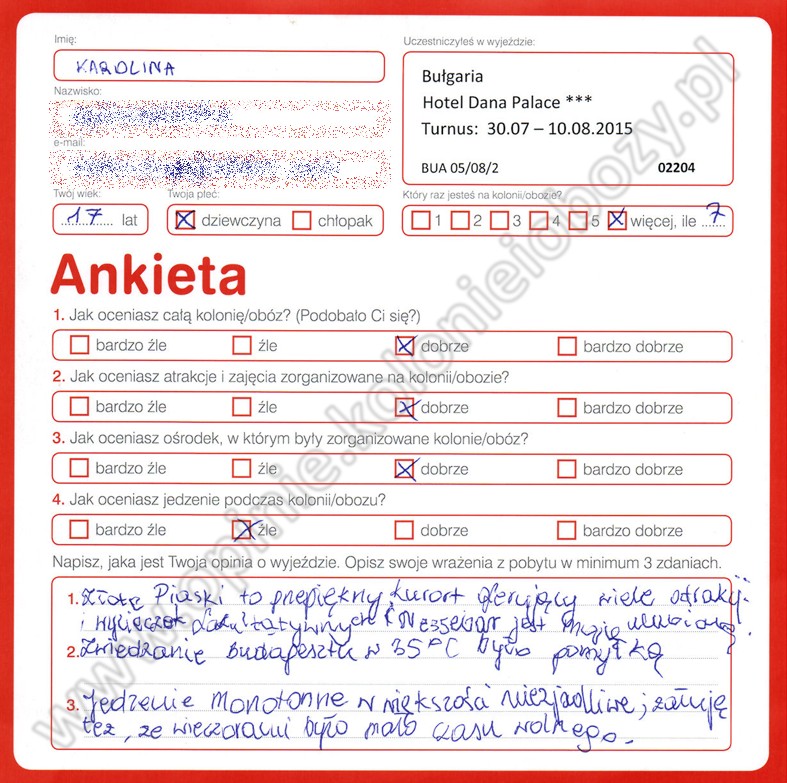 Imię:
KAROLINA
Nazwisko:
e-mail:
Twój wiek:
17 lat
Twoja płeć:
dziewczyna chłopak
Uczestniczyłeś w wyjeździe:
Bułgaria
Hotel Dana Palace ***
Turnus: 30.07 – 10.08.2015
BUA 05/08/2 02204
Który raz jesteś na kolonii/obozie?
1 2 3 4 5 więcej, ile 7
Ankieta
1. Jak oceniasz całą kolonię/obóz? (Podobało Ci się?)
bardzo źle źle dobrze bardzo dobrze
2. Jak oceniasz atrakcje i zajęcia zorganizowane na kolonii/obozie?
bardzo źle źle dobrze bardzo dobrze
3. Jak oceniasz ośrodek, w którym były zorganizowane kolonie/obóz?
bardzo źle źle dobrze bardzo dobrze
4. Jak oceniasz jedzenie podczas kolonii/obozu?
bardzo źle źle dobrze bardzo dobrze
Napisz, jaka jest Twoja opinia o wyjeździe. Opisz swoje wrażenia z pobytu w minimum 3 zdaniach.
1. Złote Piaski to przepiękny kurort oferujący wiele atrakcji
i wycieczek fakultatywnych (Nessebar jest moją ulubioną).
2. Zwiedzanie Budapesztu w 35°C było pomyłką
3. Jedzenie monotonne w większości niezjadliwe; żałuję
też, że wieczorami było mało czasu wolnego.
www.opinie.kolonieiobozy.pl